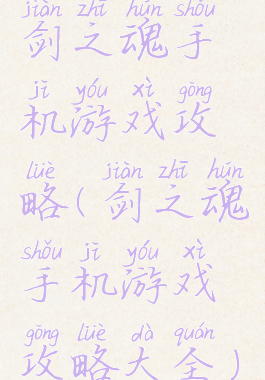 jiàn zhī hún shǒu
剑之魂手
jī yóu xì gōng
机游戏攻
lüè jiàn zhī hún
略(剑之魂
shǒu jī yóu xì
手机游戏
gōng lüè dà quán
攻略大全)